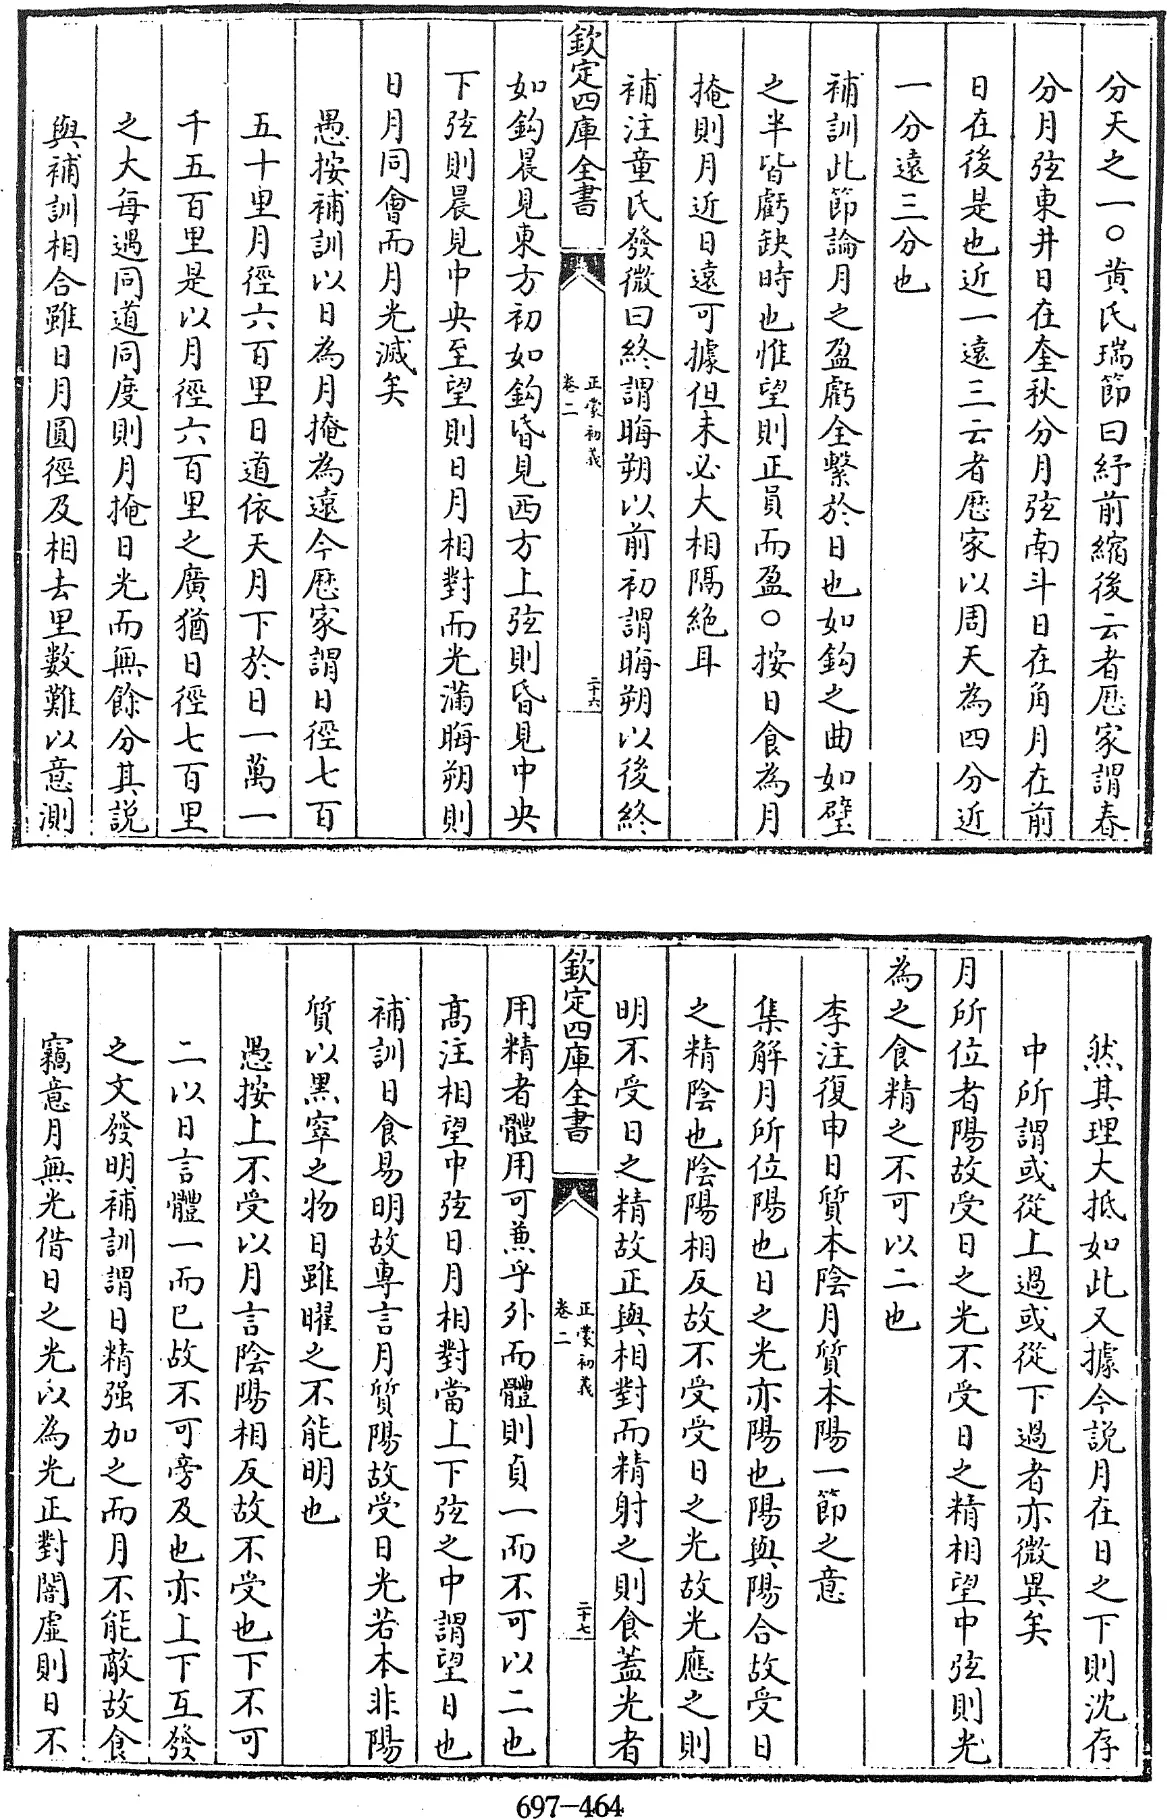 分天之一○黄氏瑞節曰紓前縮後云者厯家謂春
分月弦東井日在奎秋分月弦南斗日在角月在前
日在後是也近一遠三云者厯家以周天為四分近
一分遠三分也
補訓此節論月之盈虧全繫於日也如鈎之曲如璧
之半皆虧缺時也惟望則正員而盈○按日食為月
掩則月近日遠可據但未必大相隔絶耳
補注童氏發微曰終謂晦朔以前初謂晦朔以後終
欽定四庫全書
正蒙初義
卷二
二十六
如鈎晨見東方初如鈎昏見西方上弦則昏見中央
下弦則晨見中央至望則日月相對而光滿晦朔則
日月同會而月光滅矣
愚按補訓以日為月掩為遠今厯家謂日徑七百
五十里月徑六百里日道依天月下於日一萬一
千五百里是以月徑六百里之廣猶日徑七百里
之大每遇同道同度則月掩日光而無餘分其説
與補訓相合雖日月圓徑及相去里數難以意測
然其理大抵如此又據今説月在日之下則沈存
中所謂或從上過或從下過者亦微異矣
月所位者陽故受日之光不受日之精相望中弦則光
為之食精之不可以二也
李注復申日質本陰月質本陽一節之意
集解月所位陽也日之光亦陽也陽與陽合故受日
之精陰也陰陽相反故不受受日之光故光應之則
明不受日之精故正與相對而精射之則食葢光者
欽定四庫全書
正蒙初義
卷二
二十七
用精者體用可兼乎外而體則貞一而不可以二也
髙注相望中弦日月相對當上下弦之中謂望日也
補訓日食易明故專言月質陽故受日光若本非陽
質以黑窣之物日雖曜之不能明也
愚按上不受以月言陰陽相反故不受也下不可
二以日言體一而已故不可旁及也亦上下互發
之文發明補訓謂日精强加之而月不能敵故食
竊意月無光借日之光以為光正對闇虛則日不
697-464